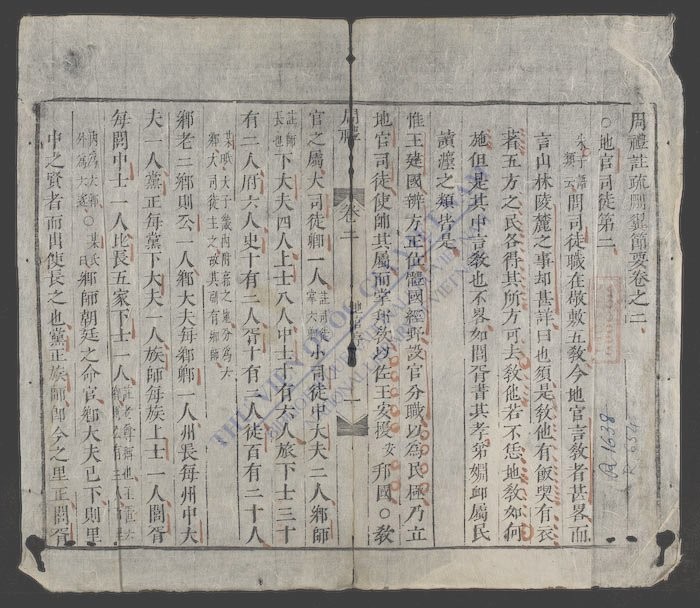 周禮註疏刪翼節要卷之二
○地官司徒第二
朱子語類云問司徒職在敬敷五教今地官言教者甚畧而
言山林陵麓之事却甚詳曰也須是教他有飯喫有衣
著五方之民各得其所方可去教他若不恁地教如何
施但是其中言教也不畧如閭胥書其孝弟婣卹屬民
讀灋之類皆是
惟王建國辨方正位體國經野設官分職以為民極乃立
地官司徒使帥其屬而掌邦教以佐王安擾邦國○教
周禮 卷二 地官 一
官之屬大司徒卿一人 小司徒中大夫二人鄉師
下大夫四人上士八人中士十有六人旅下士三十
有二人府六人史十有二人胥十有二人徒百有二十人
鄉老二鄉則公一人鄉大夫每鄉卿一人州長每州中大
夫一人黨正每黨下大夫一人族師每族上士一人閭胥
每閭中士一人比長五家下士一人
鄉師朝廷之命官鄉大夫已下則里
中之賢者而出使長之也黨正族師即今之里正閭胥
R.1638
THE VIEN DE OF CHI VIET NAM